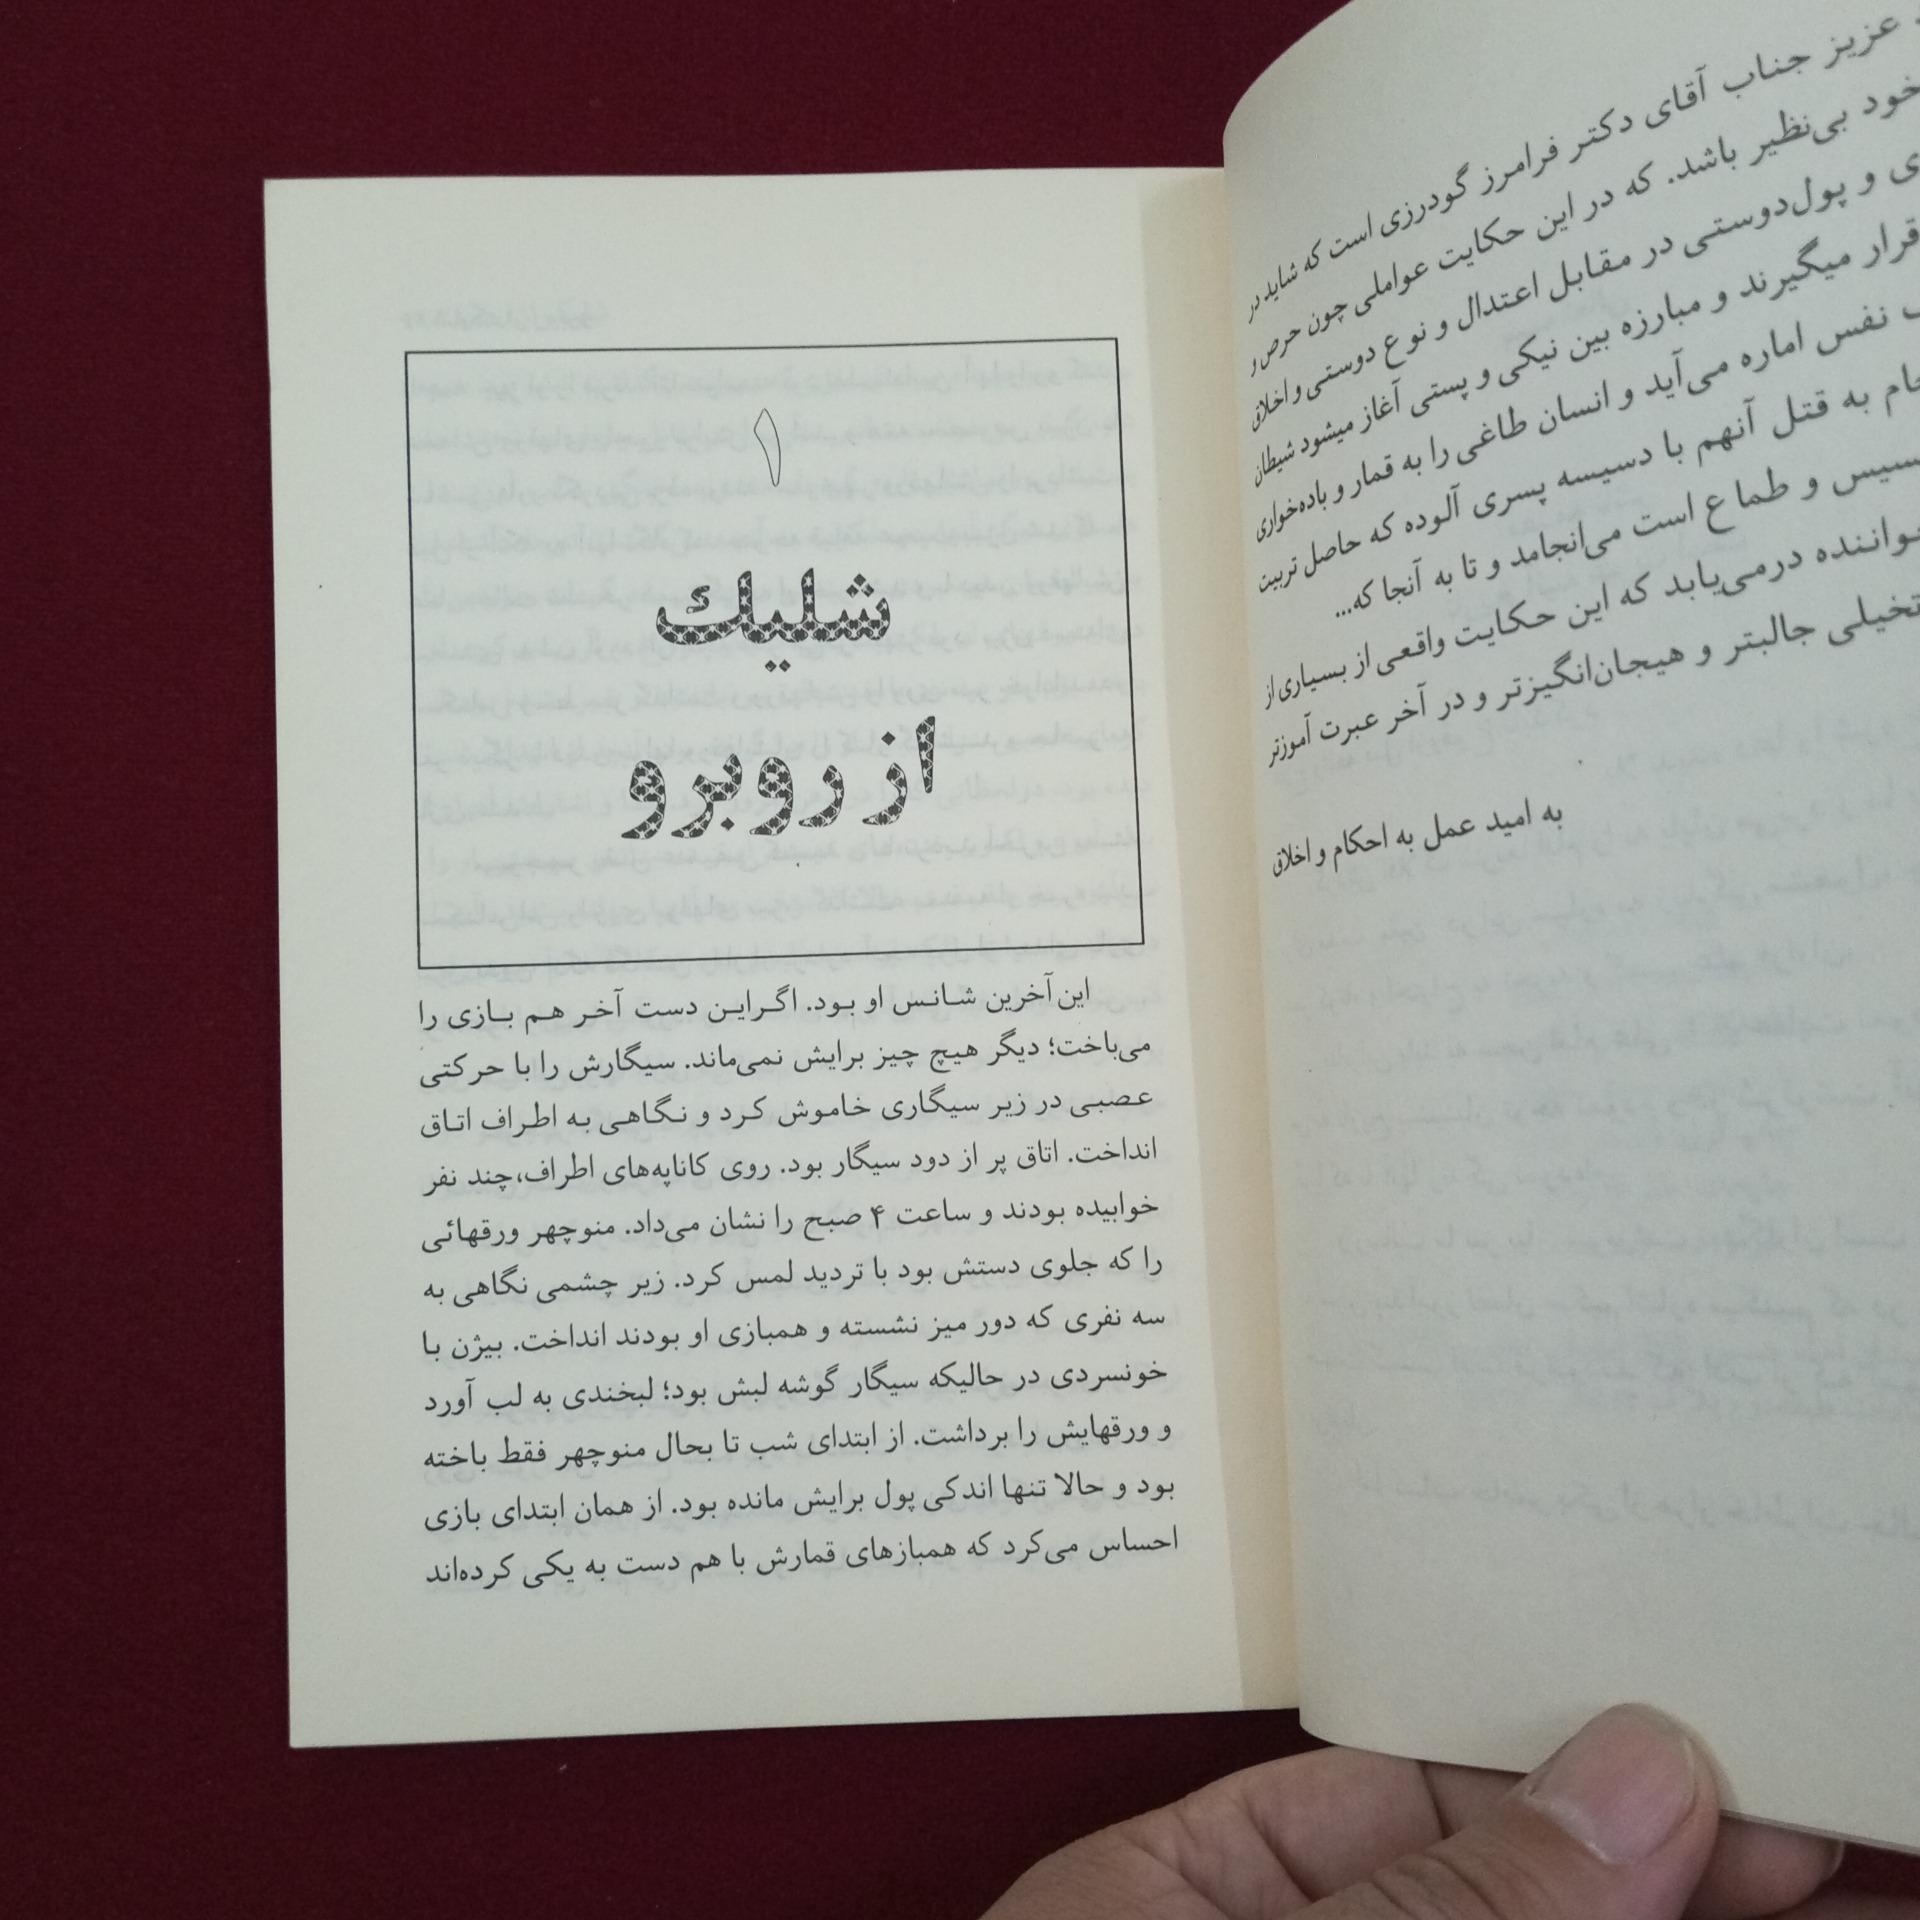 عزیز جناب آقای دکتر فرامرز گودرزی است که شاید در
خود بی‌نظیر باشد. که در این حکایت عواملی چون حرص و
ی و پول‌دوستی در مقابل اعتدال و نوع دوستی و اخلاق
قرار میگیرند و مبارزه بین نیکی و پستی آغاز میشود شیطان
نفس اماره می‌آید و انسان طاغی را به قمار و باده‌خواری
به قتل آنهم با دسیسه پسری آلوده که حاصل تربیت
و طماع است می‌انجامد و تا به آنجا که...
درمی‌یابد که این حکایت واقعی از بسیاری از
تخیلی جالبتر و هیجان‌انگیزتر و در آخر عبرت آموزتر
به امید عمل به احکام و اخلاق
۱
شلیك
از روبرو
این آخرین شانس او بود. اگراین دست آخر هم بازی را
می‌باخت؛ دیگر هیچ چیز برایش نمی‌ماند. سیگارش را با حرکتی
عصبی در زیر سیگاری خاموش کرد و نگاهی به اطراف اتاق
انداخت. اتاق پر از دود سیگار بود. روی کاناپه‌های اطراف،چند نفر
خوابیده بودند و ساعت ۴ صبح را نشان می‌داد. منوچهر ورقهائی
را که جلوی دستش بود با تردید لمس کرد. زیر چشمی نگاهی به
سه نفری که دور میز نشسته و همبازی او بودند انداخت. بیژن با
خونسردی در حالیکه سیگار گوشه لبش بود؛ لبخندی به لب آورد
و ورقهایش را برداشت. از ابتدای شب تا بحال منوچهر فقط باخته
بود و حالا تنها اندکی پول برایش مانده بود. از همان ابتدای بازی
احساس می‌کرد که همبازهای قمارش با هم دست به یکی کرده‌اند